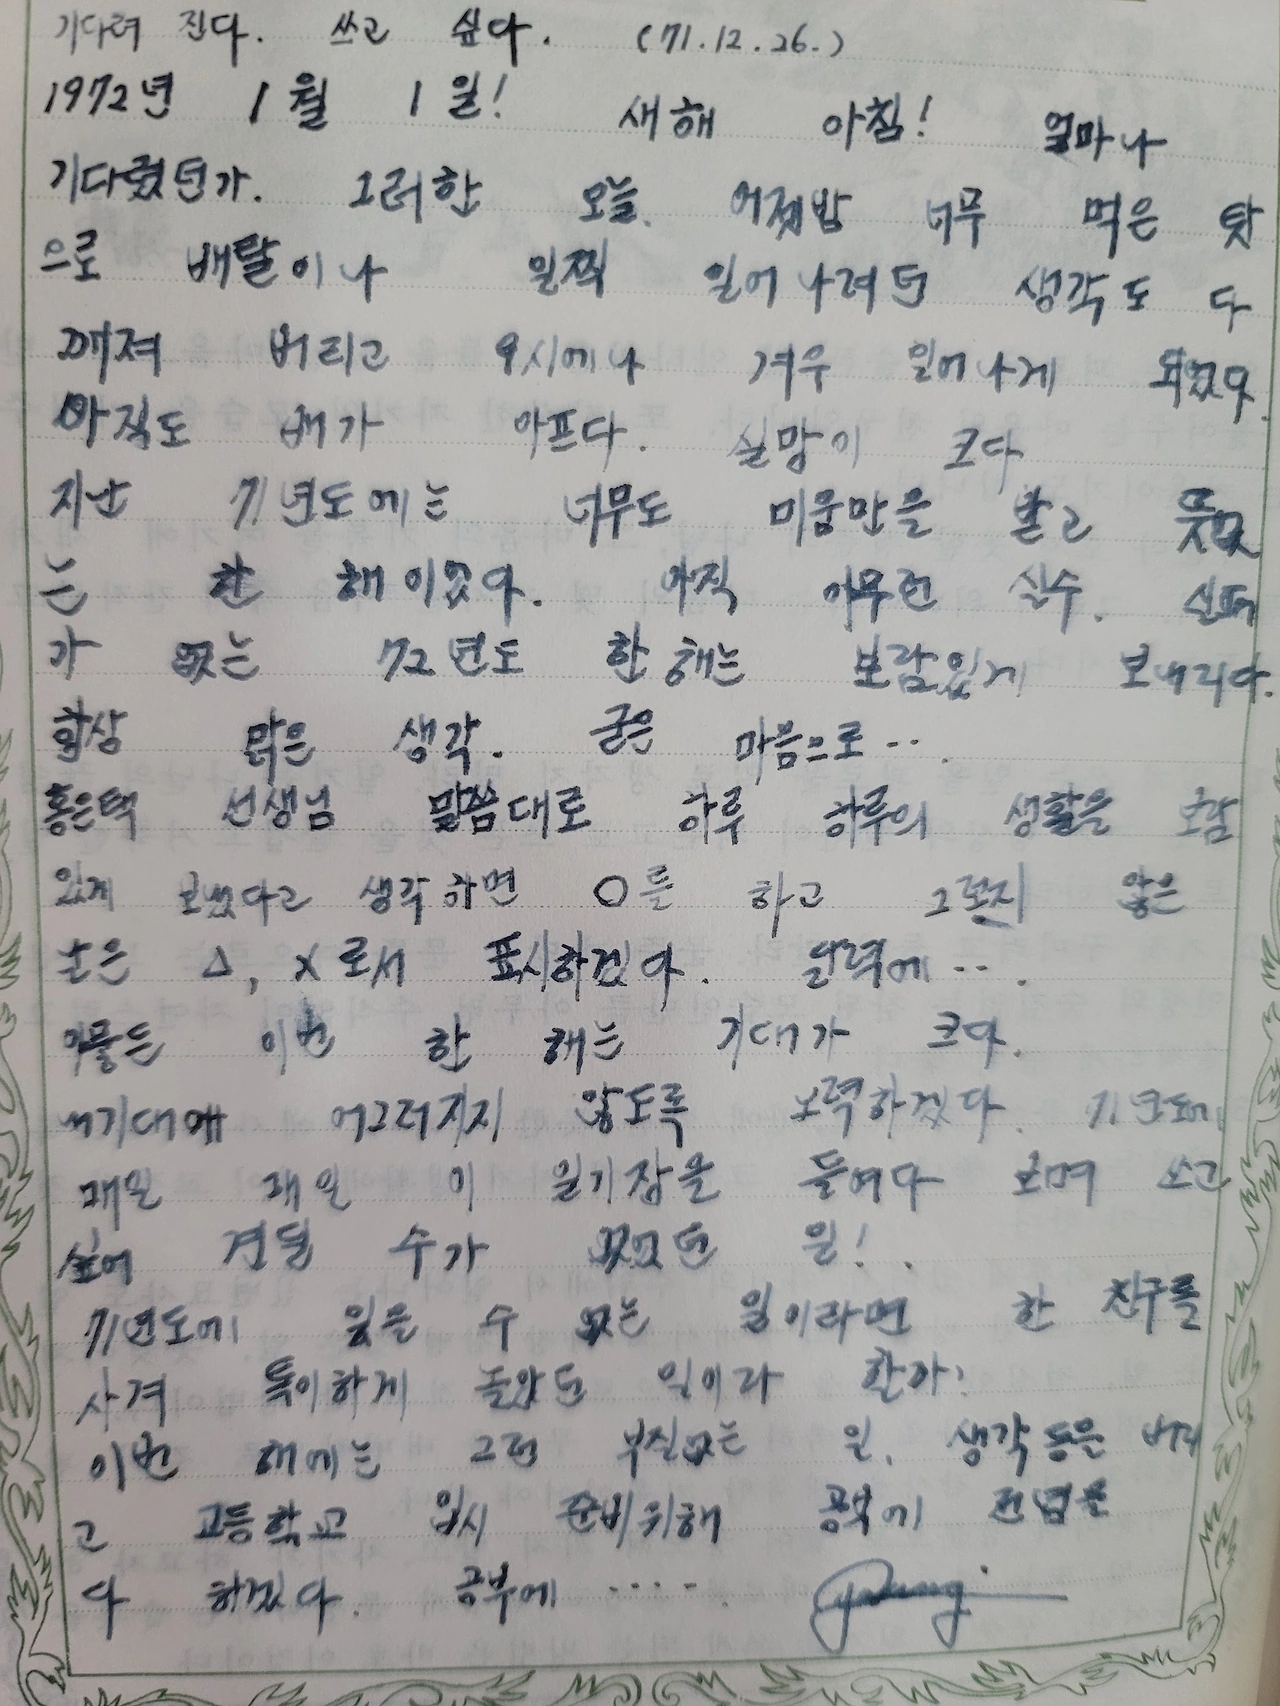 기다려 진다. 쓰고 싶다. (71.12.26.)
1972년 1월 1일! 새해 아침! 얼마나
기다렸던가. 그러한 오늘. 어젯밤 너무 먹은 탓
으로 배탈이나 일찍 일어나려던 생각도 다
깨져 버리고 9시에나 겨우 일어나게 되었다.
아직도 배가 아프다. 실망이 크다
지난 71년도에는 너무도 미움만을 받고 뜻없
는 한 해이었다. 아직 아무런 실수. 실패
가 없는 72년도 한해는 보람있게 보내리다.
항상 맑은 생각. 굳은 마음으로...
홍은택 선생님 말씀대로 하루 하루의 생활을 보람
있게 보냈다고 생각하면 ○를 하고 그렇지 않은
날은 △, ×로서 표시하겠다. 달력에...
아뭏든 이번 한 해는 기대가 크다.
내기대에 어그러지지 않도록 노력하겠다. 71년도에
매일 매일 이 일기장을 들여다 보며 쓰고
싶어 견딜 수가 없었던 일!.
71년도에 잊을 수 없는 일이라면 한 친구를
사겨 특이하게 놀았던 일이라 할까!
이번 해에는 그런 부질없는 일, 생각등은 버리
고 고등학교 입시 준비위해 공부에 전념을
다 하겠다. 공부에 .....